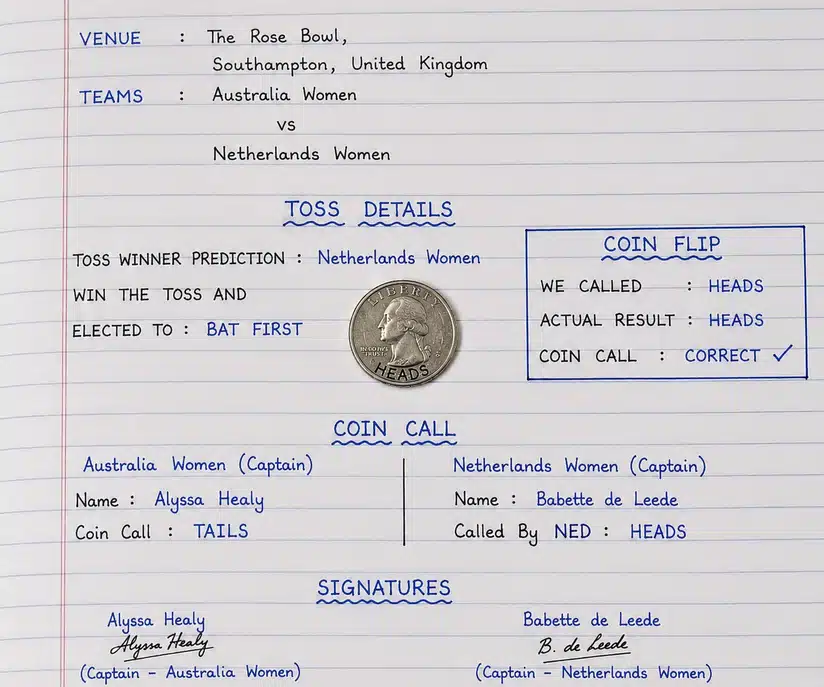 VENUE : The Rose Bowl,
Southampton, United Kingdom
TEAMS : Australia Women
vs
Netherlands Women
TOSS DETAILS
TOSS WINNER PREDICTION : Netherlands Women
WIN THE TOSS AND
ELECTED TO : BAT FIRST
LIBERTY
IN GOD WE
TRUST
HEADS
COIN FLIP
WE CALLED : HEADS
ACTUAL RESULT : HEADS
COIN CALL : CORRECT ✓
COIN CALL
Australia Women (Captain)
Name : Alyssa Healy
Coin Call : TAILS
Netherlands Women (Captain)
Name : Babette de Leede
Called By NED : HEADS
SIGNATURES
Alyssa Healy
Alyssa Healy
(Captain - Australia Women)
Babette de Leede
B. de Leede
(Captain - Netherlands Women)